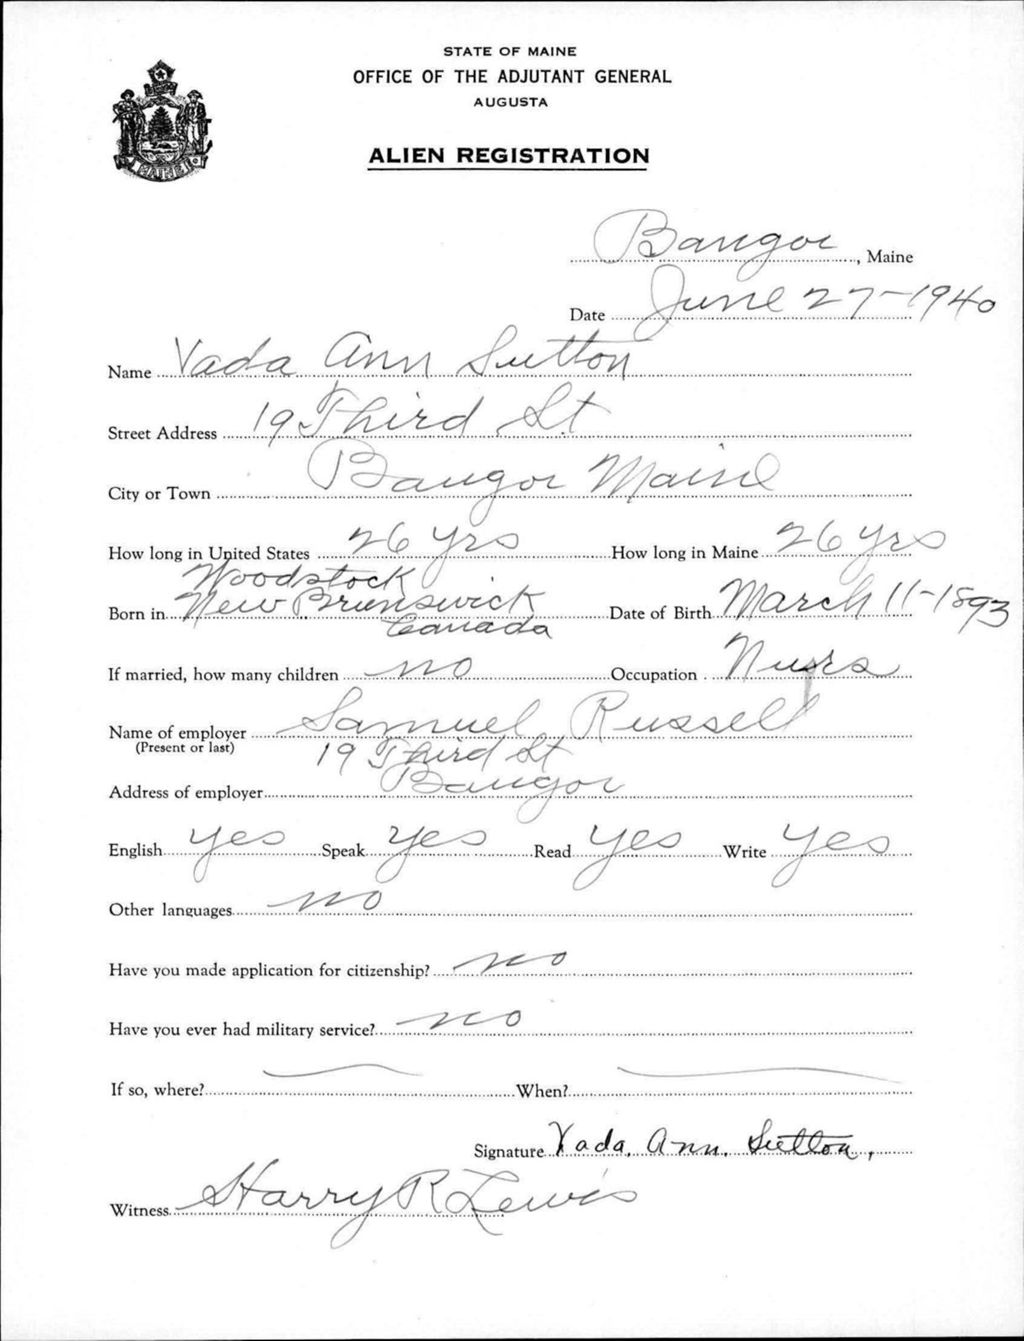 STATE OF MAINE
OFFICE OF THE ADJUTANT GENERAL
AUGUSTA
ALIEN REGISTRATION
MAINE
Bangor, Maine
Date June 27-1940
Name Vada Ann Sutton
Street Address 19 Third St
City or Town Bangor Maine
How long in United States 26 yrs How long in Maine 26 yrs
Woodstock
Born in New Brunswick Date of Birth March 11-1893
Canada
If married, how many children no Occupation Nurs
Name of employer Samuel Russell
(Present or last)
19 Third St
Address of employer Bangor
English yes Speak yes Read yes Write yes
Other languages no
Have you made application for citizenship? no
Have you ever had military service? no
If so, where? — When? —
Signature Vada. Ann. Sutton,
Witness Harry R Lewis